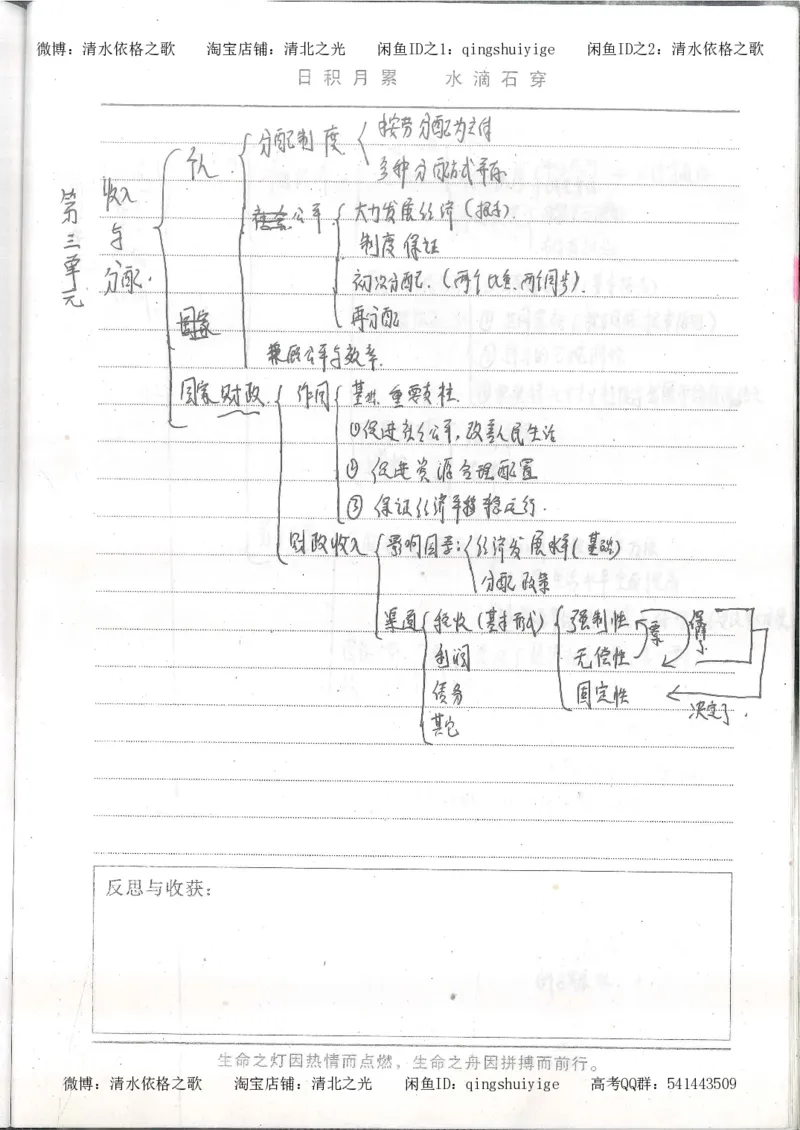 微博：清水依格之歌 淘宝店铺：清北之光 闲鱼ID之1：qingshuiyige 闲鱼ID之2：清水依格之歌
日积月累 水滴石穿
第三单元
收入与分配.
个人.
分配制度
按劳分配为主体
多种分配方式并存
社会公平
大力发展经济
制度保证
初次分配.（两个比重.两个同步）.
再分配
兼顾公平与效率.
国家
国家财政.
作用
基础 重要支柱.
①促进社会公平,改善人民生活
② 促进资源合理配置
③ 保证经济平稳运行.
财政收入
影响因素:
经济发展水平(基础)
分配政策
渠道
税收（基本形式）
强制性
无偿性
固定性
决定了.
利润
债务
其它
反思与收获：
生命之灯因热情而点燃，生命之舟因拼搏而前行。
微博：清水依格之歌 淘宝店铺：清北之光 闲鱼ID：qingshuiyige 高考QQ群：541443509